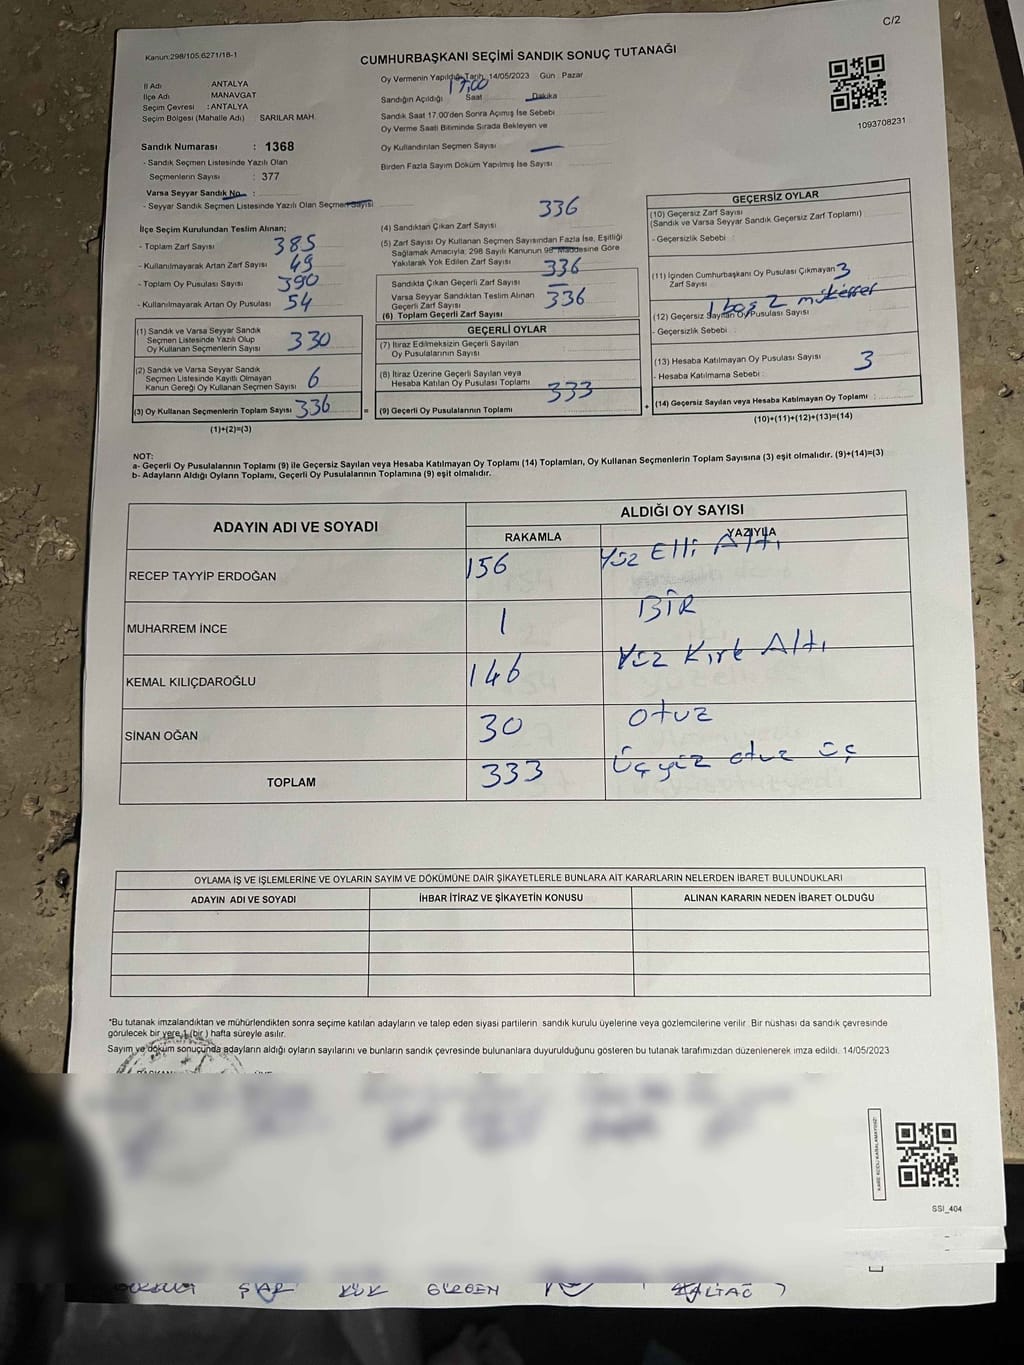 C/2
Kanun:298/105:6271/18-1
CUMHURBAŞKANI SEÇİMİ SANDIK SONUÇ TUTANAĞI
İl Adı ANTALYA
İlçe Adı MANAVGAT
Seçim Çevresi : ANTALYA
Seçim Bölgesi (Mahalle Adı) SARILAR MAH.
Sandık Numarası : 1368
- Sandık Seçmen Listesinde Yazılı Olan
Seçmenlerin Sayısı : 377
Varsa Seyyar Sandık No :
- Seyyar Sandık Seçmen Listesinde Yazılı Olan Seçmen Sayısı
Oy Vermenin Yapıldığı Tarih 14/05/2023 Gün : Pazar
Sandığın Açıldığı 17,00 Saat Dakika
Sandık Saat 17.00'den Sonra Açılmış İse Sebebi
Oy Verme Saati Bitiminde Sırada Bekleyen ve
Oy Kullandırılan Seçmen Sayısı —
Birden Fazla Sayım Döküm Yapılmış İse Sayısı
1093708231
İlçe Seçim Kurulundan Teslim Alınan;
- Toplam Zarf Sayısı 385
- Kullanılmayarak Artan Zarf Sayısı 49
- Toplam Oy Pusulası Sayısı 390
- Kullanılmayarak Artan Oy Pusulası 54
(1) Sandık ve Varsa Seyyar Sandık
Seçmen Listesinde Yazılı Olup
Oy Kullanan Seçmenlerin Sayısı 330
(2) Sandık ve Varsa Seyyar Sandık
Seçmen Listesinde Kayıtlı Olmayan
Kanun Gereği Oy Kullanan Seçmen Sayısı 6
(3) Oy Kullanan Seçmenlerin Toplam Sayısı 336
(1)+(2)=(3)
(4) Sandıktan Çıkan Zarf Sayısı 336
(5) Zarf Sayısı Oy Kullanan Seçmen Sayısından Fazla İse, Eşitliği
Sağlamak Amacıyla; 298 Sayılı Kanunun 98. Maddesine Göre
Yakılarak Yok Edilen Zarf Sayısı
Sandıkta Çıkan Geçerli Zarf Sayısı 336
Varsa Seyyar Sandıktan Teslim Alınan —
Geçerli Zarf Sayısı
(6) Toplam Geçerli Zarf Sayısı 336
=
GEÇERLİ OYLAR
(7) İtiraz Edilmeksizin Geçerli Sayılan
Oy Pusulalarının Sayısı
(8) İtiraz Üzerine Geçerli Sayılan veya
Hesaba Katılan Oy Pusulası Toplamı
(9) Geçerli Oy Pusulalarının Toplamı 333
+
GEÇERSİZ OYLAR
(10) Geçersiz Zarf Sayısı
(Sandık ve Varsa Seyyar Sandık Geçersiz Zarf Toplamı)
- Geçersizlik Sebebi :
(11) İçinden Cumhurbaşkanı Oy Pusulası Çıkmayan 3
Zarf Sayısı
1 boş 2 mükerrer
(12) Geçersiz Sayılan Oy Pusulası Sayısı
- Geçersizlik Sebebi
(13) Hesaba Katılmayan Oy Pusulası Sayısı
- Hesaba Katılmama Sebebi :
3
(14) Geçersiz Sayılan veya Hesaba Katılmayan Oy Toplamı :
(10)+(11)+(12)+(13)=(14)
NOT:
a- Geçerli Oy Pusulalarının Toplamı (9) ile Geçersiz Sayılan veya Hesaba Katılmayan Oy Toplamı (14) Toplamları, Oy Kullanan Seçmenlerin Toplam Sayısına (3) eşit olmalıdır. (9)+(14)=(3)
b- Adayların Aldığı Oyların Toplamı, Geçerli Oy Pusulalarının Toplamına (9) eşit olmalıdır.
ADAYIN ADI VE SOYADI ALDIĞI OY SAYISI
RAKAMLA YAZIYLA
RECEP TAYYİP ERDOĞAN 156 Yüz Elli Altı
MUHARREM İNCE 1 BİR
KEMAL KILIÇDAROĞLU 146 Yüz Kırk Altı
SİNAN OĞAN 30 otuz
TOPLAM 333 Üçyüz otuz üç
OYLAMA İŞ VE İŞLEMLERİNE VE OYLARIN SAYIM VE DÖKÜMÜNE DAİR ŞİKAYETLERLE BUNLARA AİT KARARLARIN NELERDEN İBARET BULUNDUKLARI
ADAYIN ADI VE SOYADI İHBAR İTİRAZ VE ŞİKAYETİN KONUSU ALINAN KARARIN NEDEN İBARET OLDUĞU
*Bu tutanak imzalandıktan ve mühürlendikten sonra seçime katılan adayların ve talep eden siyasi partilerin sandık kurulu üyelerine veya gözlemcilerine verilir. Bir nüshası da sandık çevresinde
görülecek bir yere 1 (bir) hafta süreyle asılır.
Sayım ve döküm sonucunda adayların aldığı oyların sayılarını ve bunların sandık çevresinde bulunanlara duyurulduğunu gösteren bu tutanak tarafımızdan düzenlenerek imza edildi. 14/05/2023
SSI_404